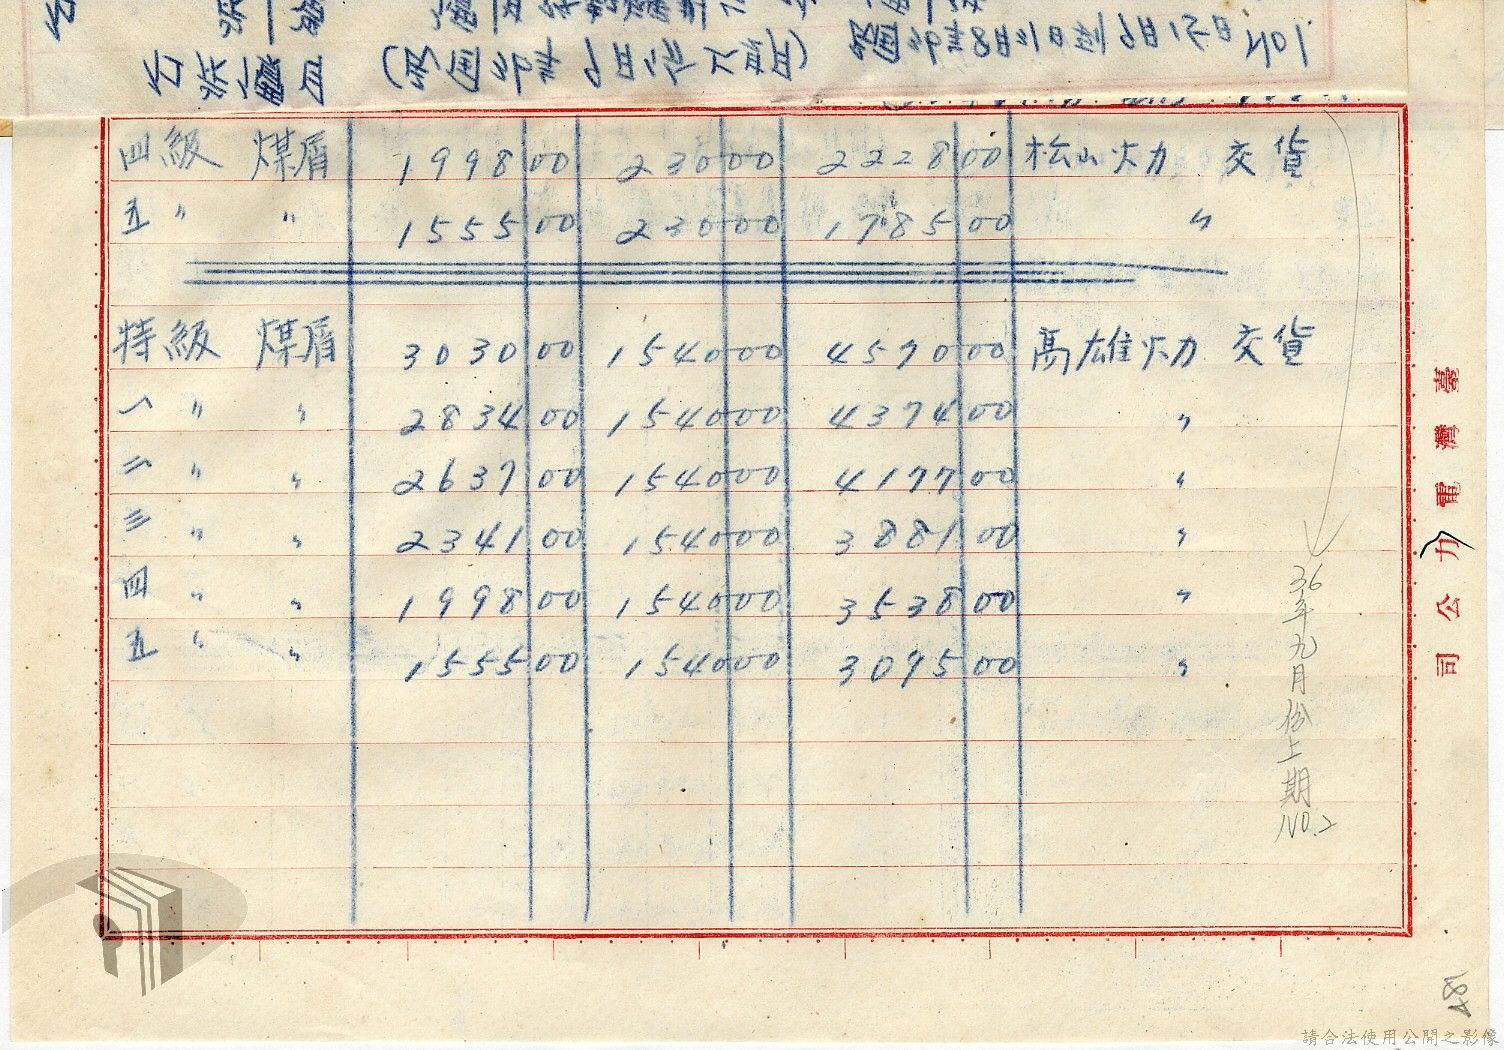 四級 煤屑 1998 00 230 00 2228 00 松山火力 交貨
五 〃 〃 1555 00 230 00 1785 00 〃
特級 煤屑 3030 00 1540 00 4570 00 高雄火力 交貨
一 〃 〃 2834 00 1540 00 4374 00 〃
二 〃 〃 2637 00 1540 00 4177 00 〃
三 〃 〃 2341 00 1540 00 3881 00 〃
四 〃 〃 1998 00 1540 00 3538 00 〃
五 〃 〃 1555 00 1540 00 3095 00 〃
36年九月份上期 NO.2
臺灣電力公司
請合法使用公開之影像